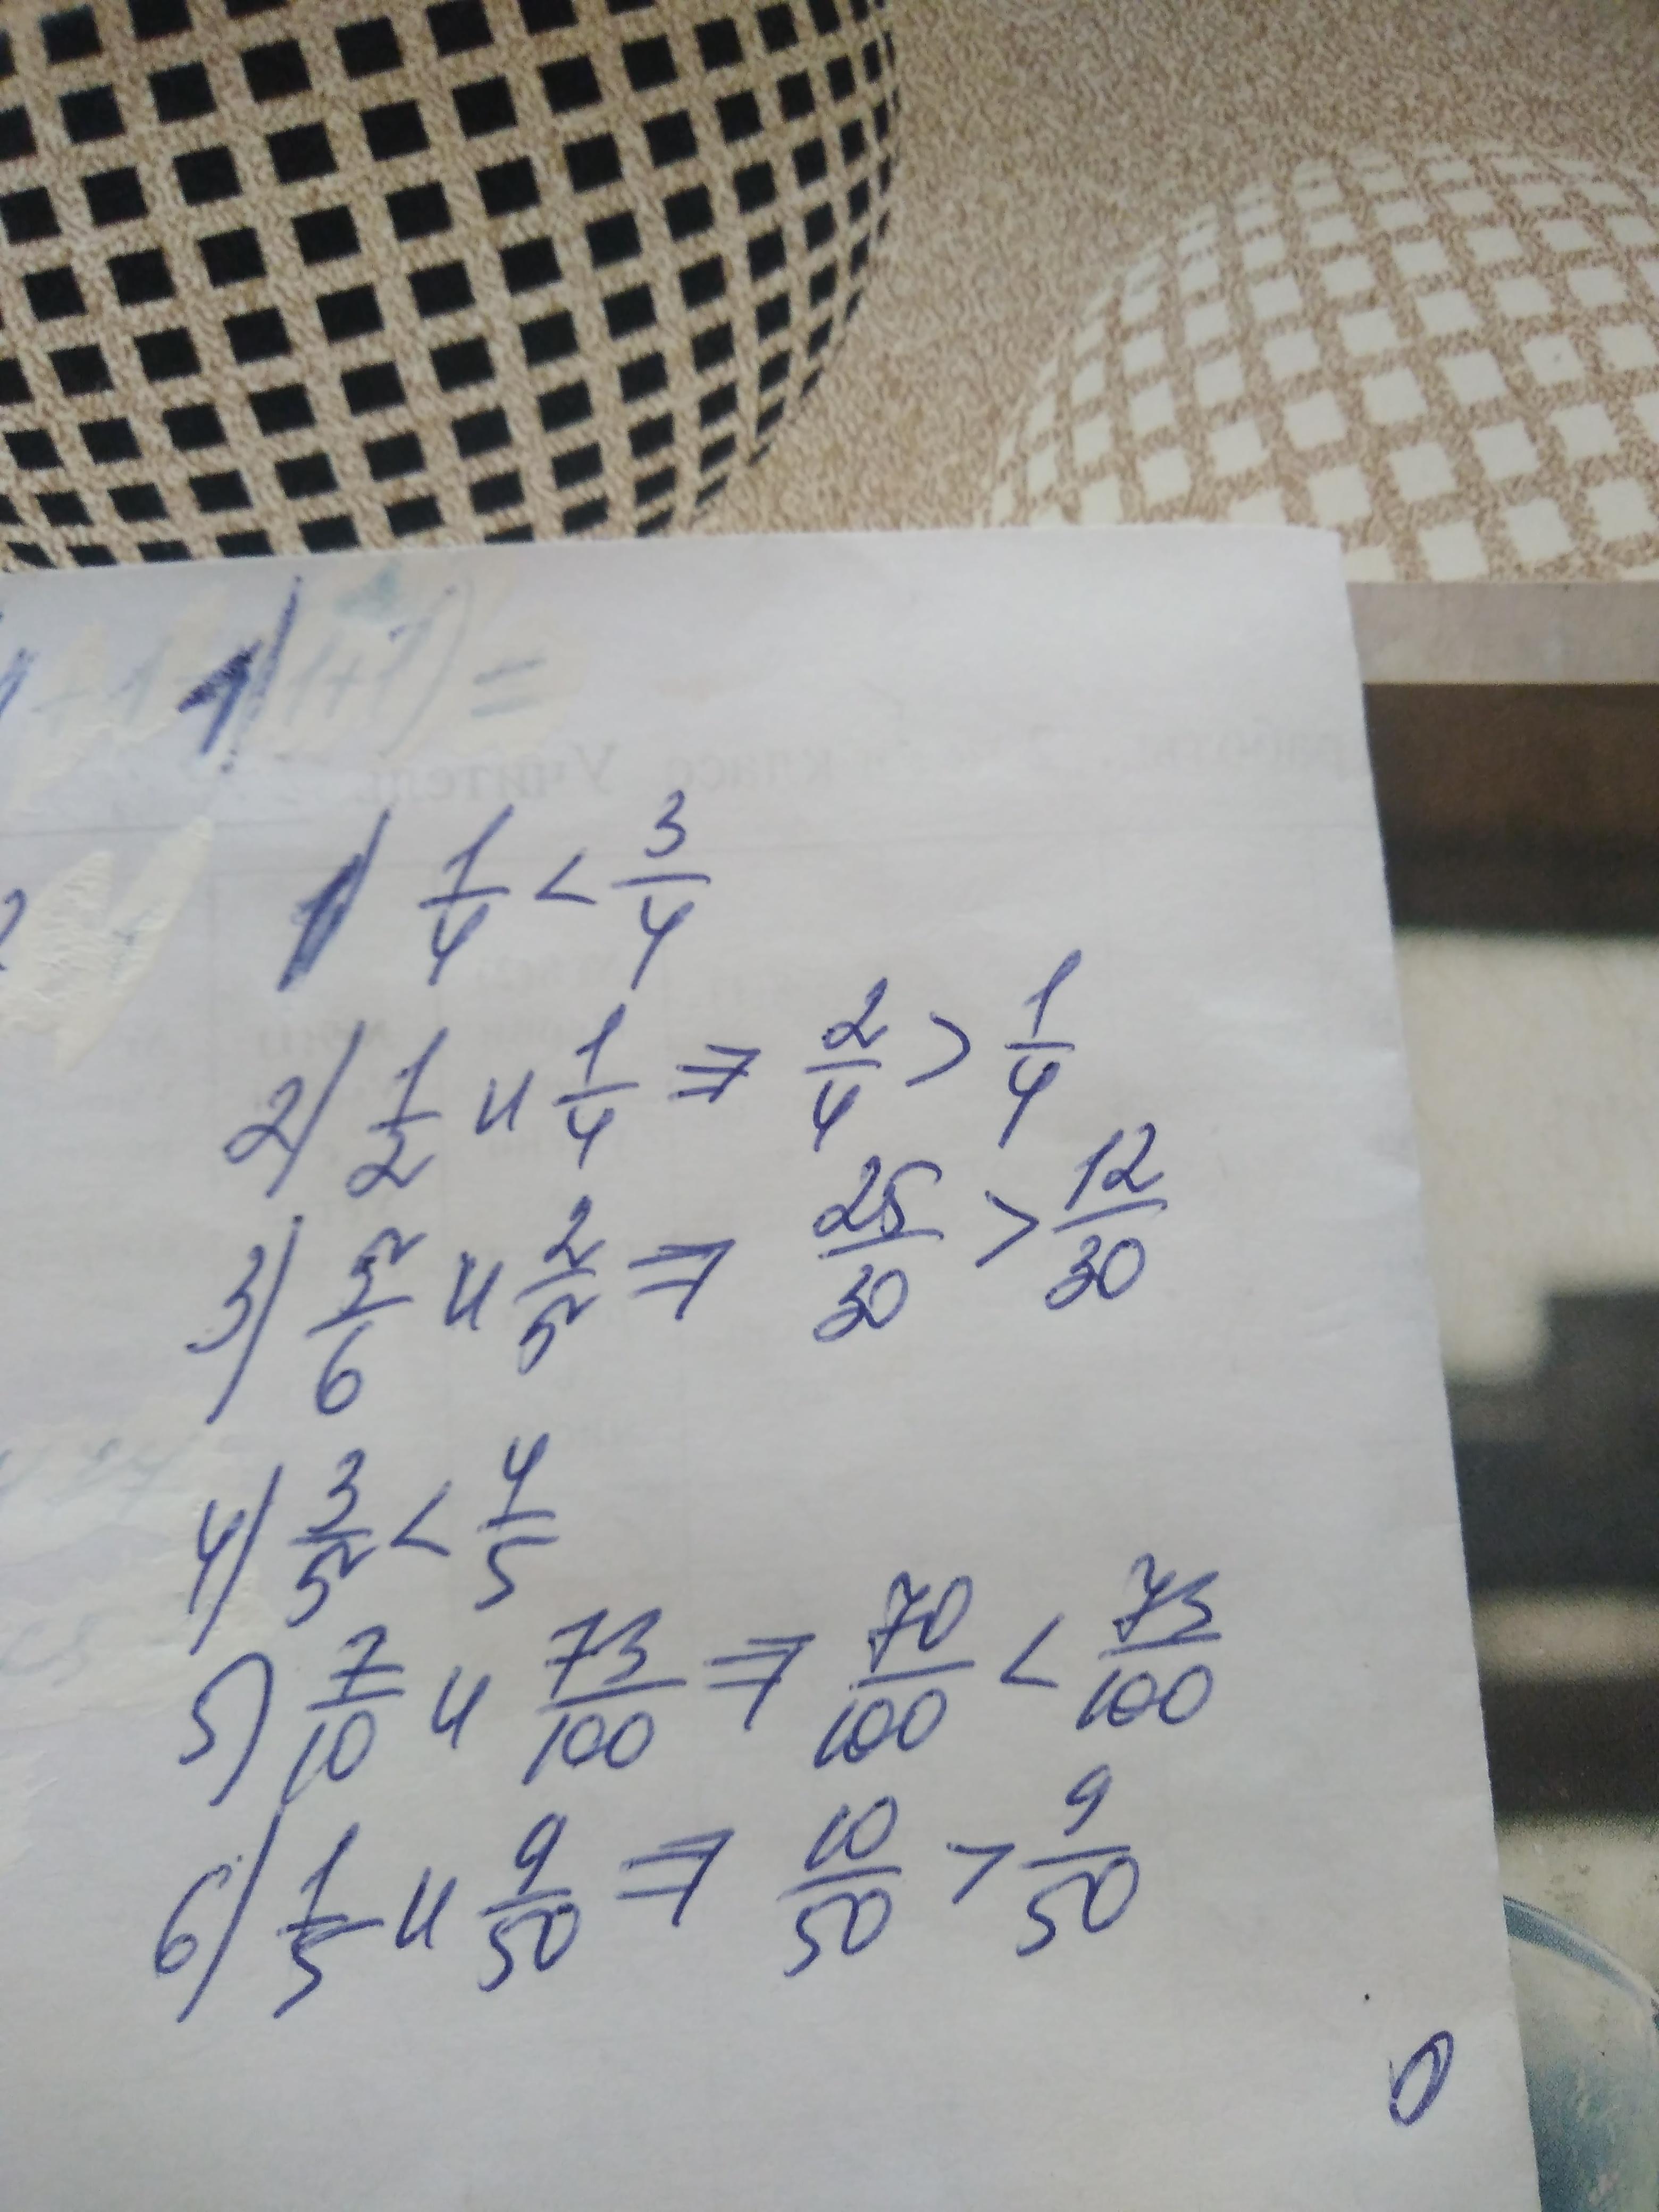 1+1) =
1) 1/4 < 3/4
2) 1/2 и 1/4 ⇒ 2/4 > 1/4
3) 5/6 и 2/5 ⇒ 25/30 > 12/30
4) 3/5 < 4/5
5) 7/10 и 73/100 ⇒ 70/100 < 73/100
6) 1/5 и 9/50 ⇒ 10/50 > 9/50
0